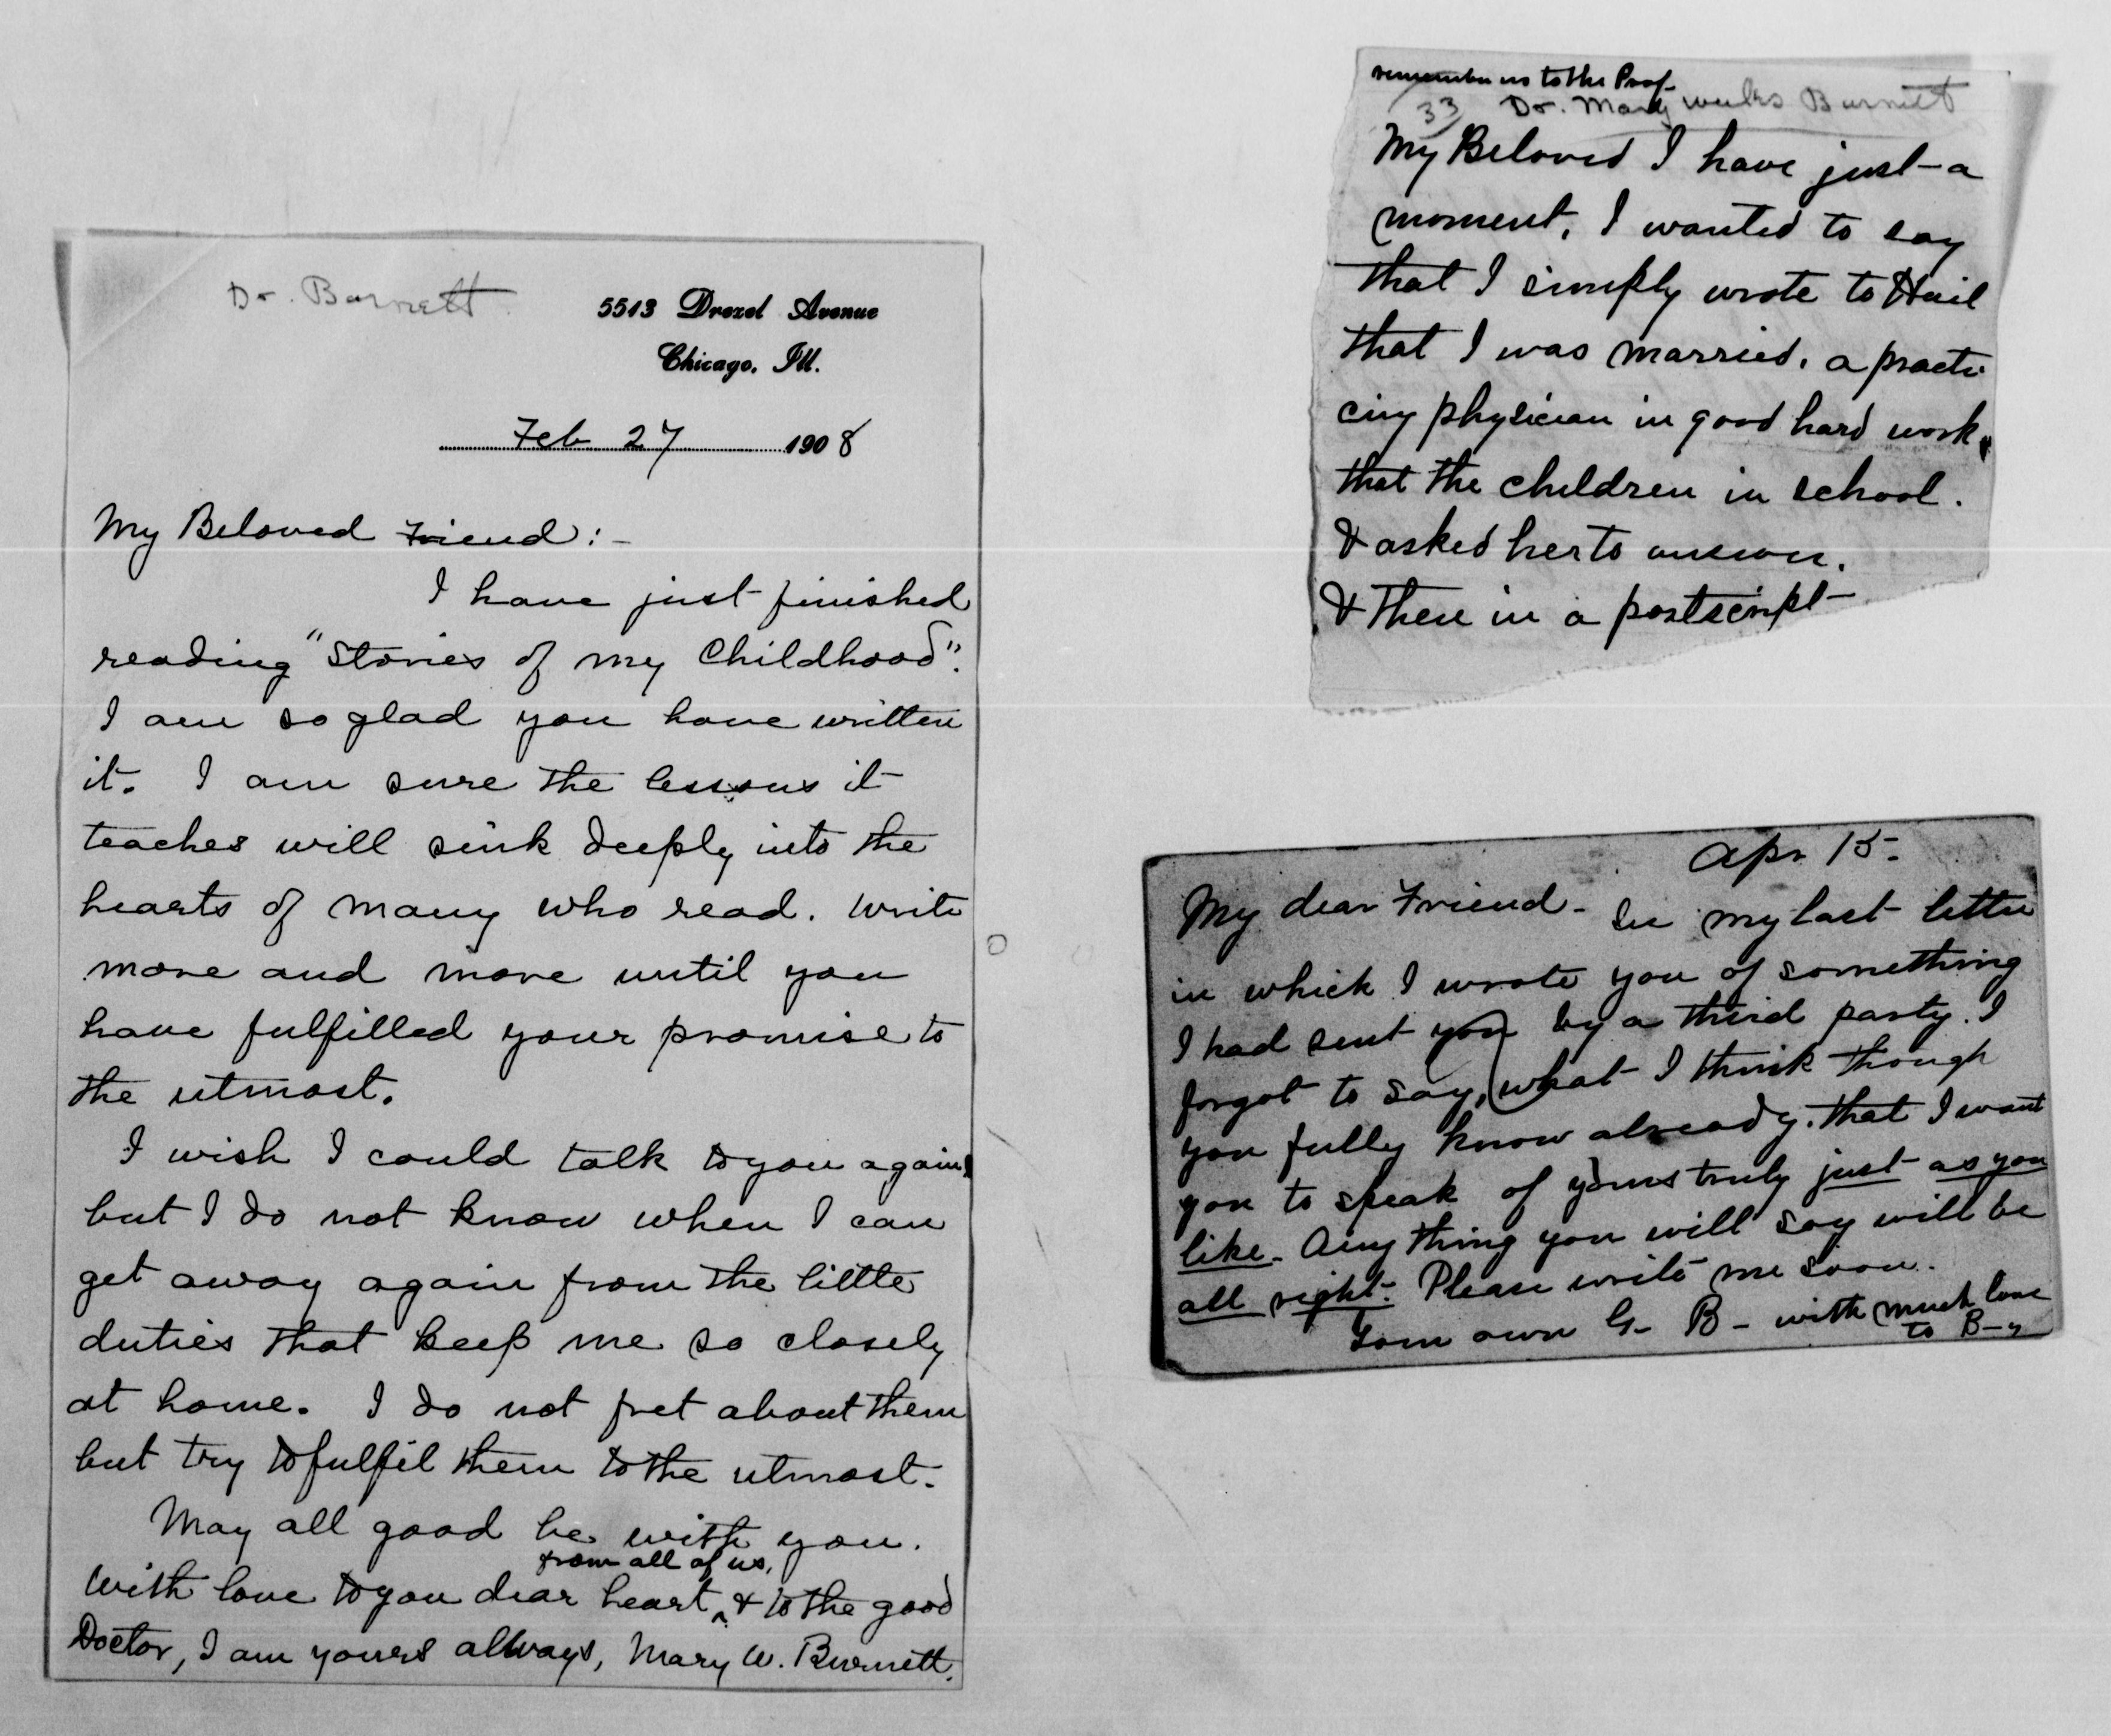 Dr. Burnett
5513 Drexel Avenue
Chicago, Ill.
Feb 27 1908
My Beloved Friend:-
I have just finished
reading "Stories of my Childhood".
I am so glad you have written
it. I am sure the lessons it
teaches will sink deeply into the
hearts of many who read. Write
more and more until you
have fulfilled your promise to
the utmost.
I wish I could talk to you again,
but I do not know when I can
get away again from the little
duties that keep me so closely
at home. I do not fret about them
but try to fulfil them to the utmost.
May all good be with you.
from all of us,
With love to you dear heart ^ & to the good
Doctor, I am yours allways, Mary W. Burnett.
remember us to the Prof-
33 Dr. Mary Weeks Burnett
My Beloved I have just a
moment, I wanted to say
that I simply wrote to
that I was married. a practi
cing physician in good hard work,
that the children in school.
& asked her to answer.
& then in a postscript
Apr 15-
My dear Friend- In my last letter
in which I wrote you of something
I had sent you by a third party. I
forgot to say, what I think though
you fully know already. that I want
you to speak of yours truly just as you
like. Any thing you will say will be
all right. Please write me soon.
Your own G- B- with much love
to B-y